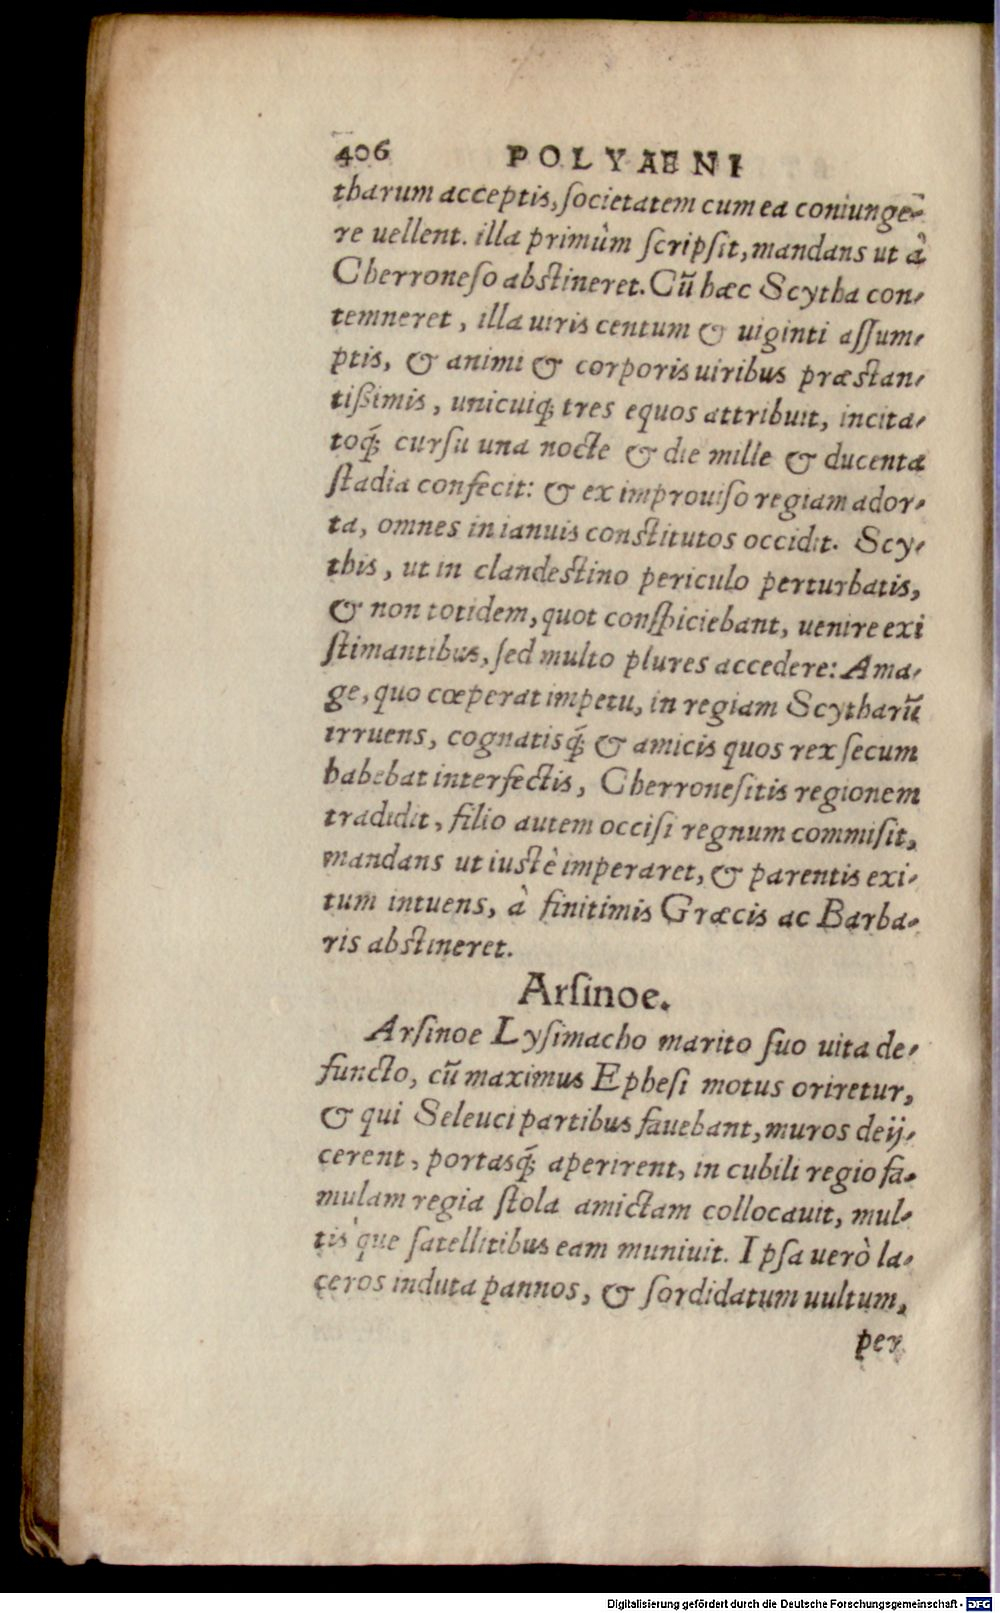 406 POLYAENI
tharum acceptis, ſocietatem cum ea coniunge-
re uellent. illa primùm ſcripſit, mandans ut à
Cherroneſo abſtineret. Cũ hæc Scytha con-
temneret, illa uiris centum & uiginti aſſum-
ptis, & animi & corporis uiribus præſtan-
tißimis, unicuiq́; tres equos attribuit, incita-
toq́; curſu una nocte & die mille & ducenta
ſtadia confecit: & ex improuiſo regiam ador-
ta, omnes in ianuis conſtitutos occidit. Scy-
this, ut in clandeſtino periculo perturbatis,
& non totidem, quot conſpiciebant, uenire exi
ſtimantibus, ſed multo plures accedere: Ama-
ge, quo cœperat impetu, in regiam Scytharũ
irruens, cognatisq́; & amicis quos rex ſecum
habebat interfectis, Cherroneſitis regionem
tradidit, filio autem occiſi regnum commiſit,
mandans ut iuſtè imperaret, & parentis exi-
tum intuens, à finitimis Græcis ac Barba-
ris abſtineret.
Arſinoe.
Arſinoe Lyſimacho marito ſuo uita de-
functo, cũ maximus Epheſi motus oriretur,
& qui Seleuci partibus fauebant, muros deij-
cerent, portasq́; aperirent, in cubili regio fa-
mulam regia ſtola amictam collocauit, mul-
tis`que ſatellitibus eam muniuit. Ipſa uerò la-
ceros induta pannos, & ſordidatum uultum,
per
Digitalisierung gefördert durch die Deutsche Forschungsgemeinschaft - DFG